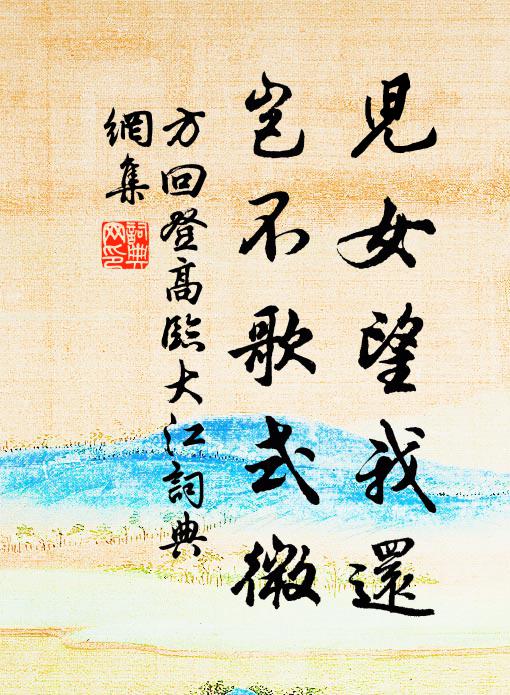 兒女望我還
豈不歌式微
方回登高臨大江詞典
網集
詞典
網印